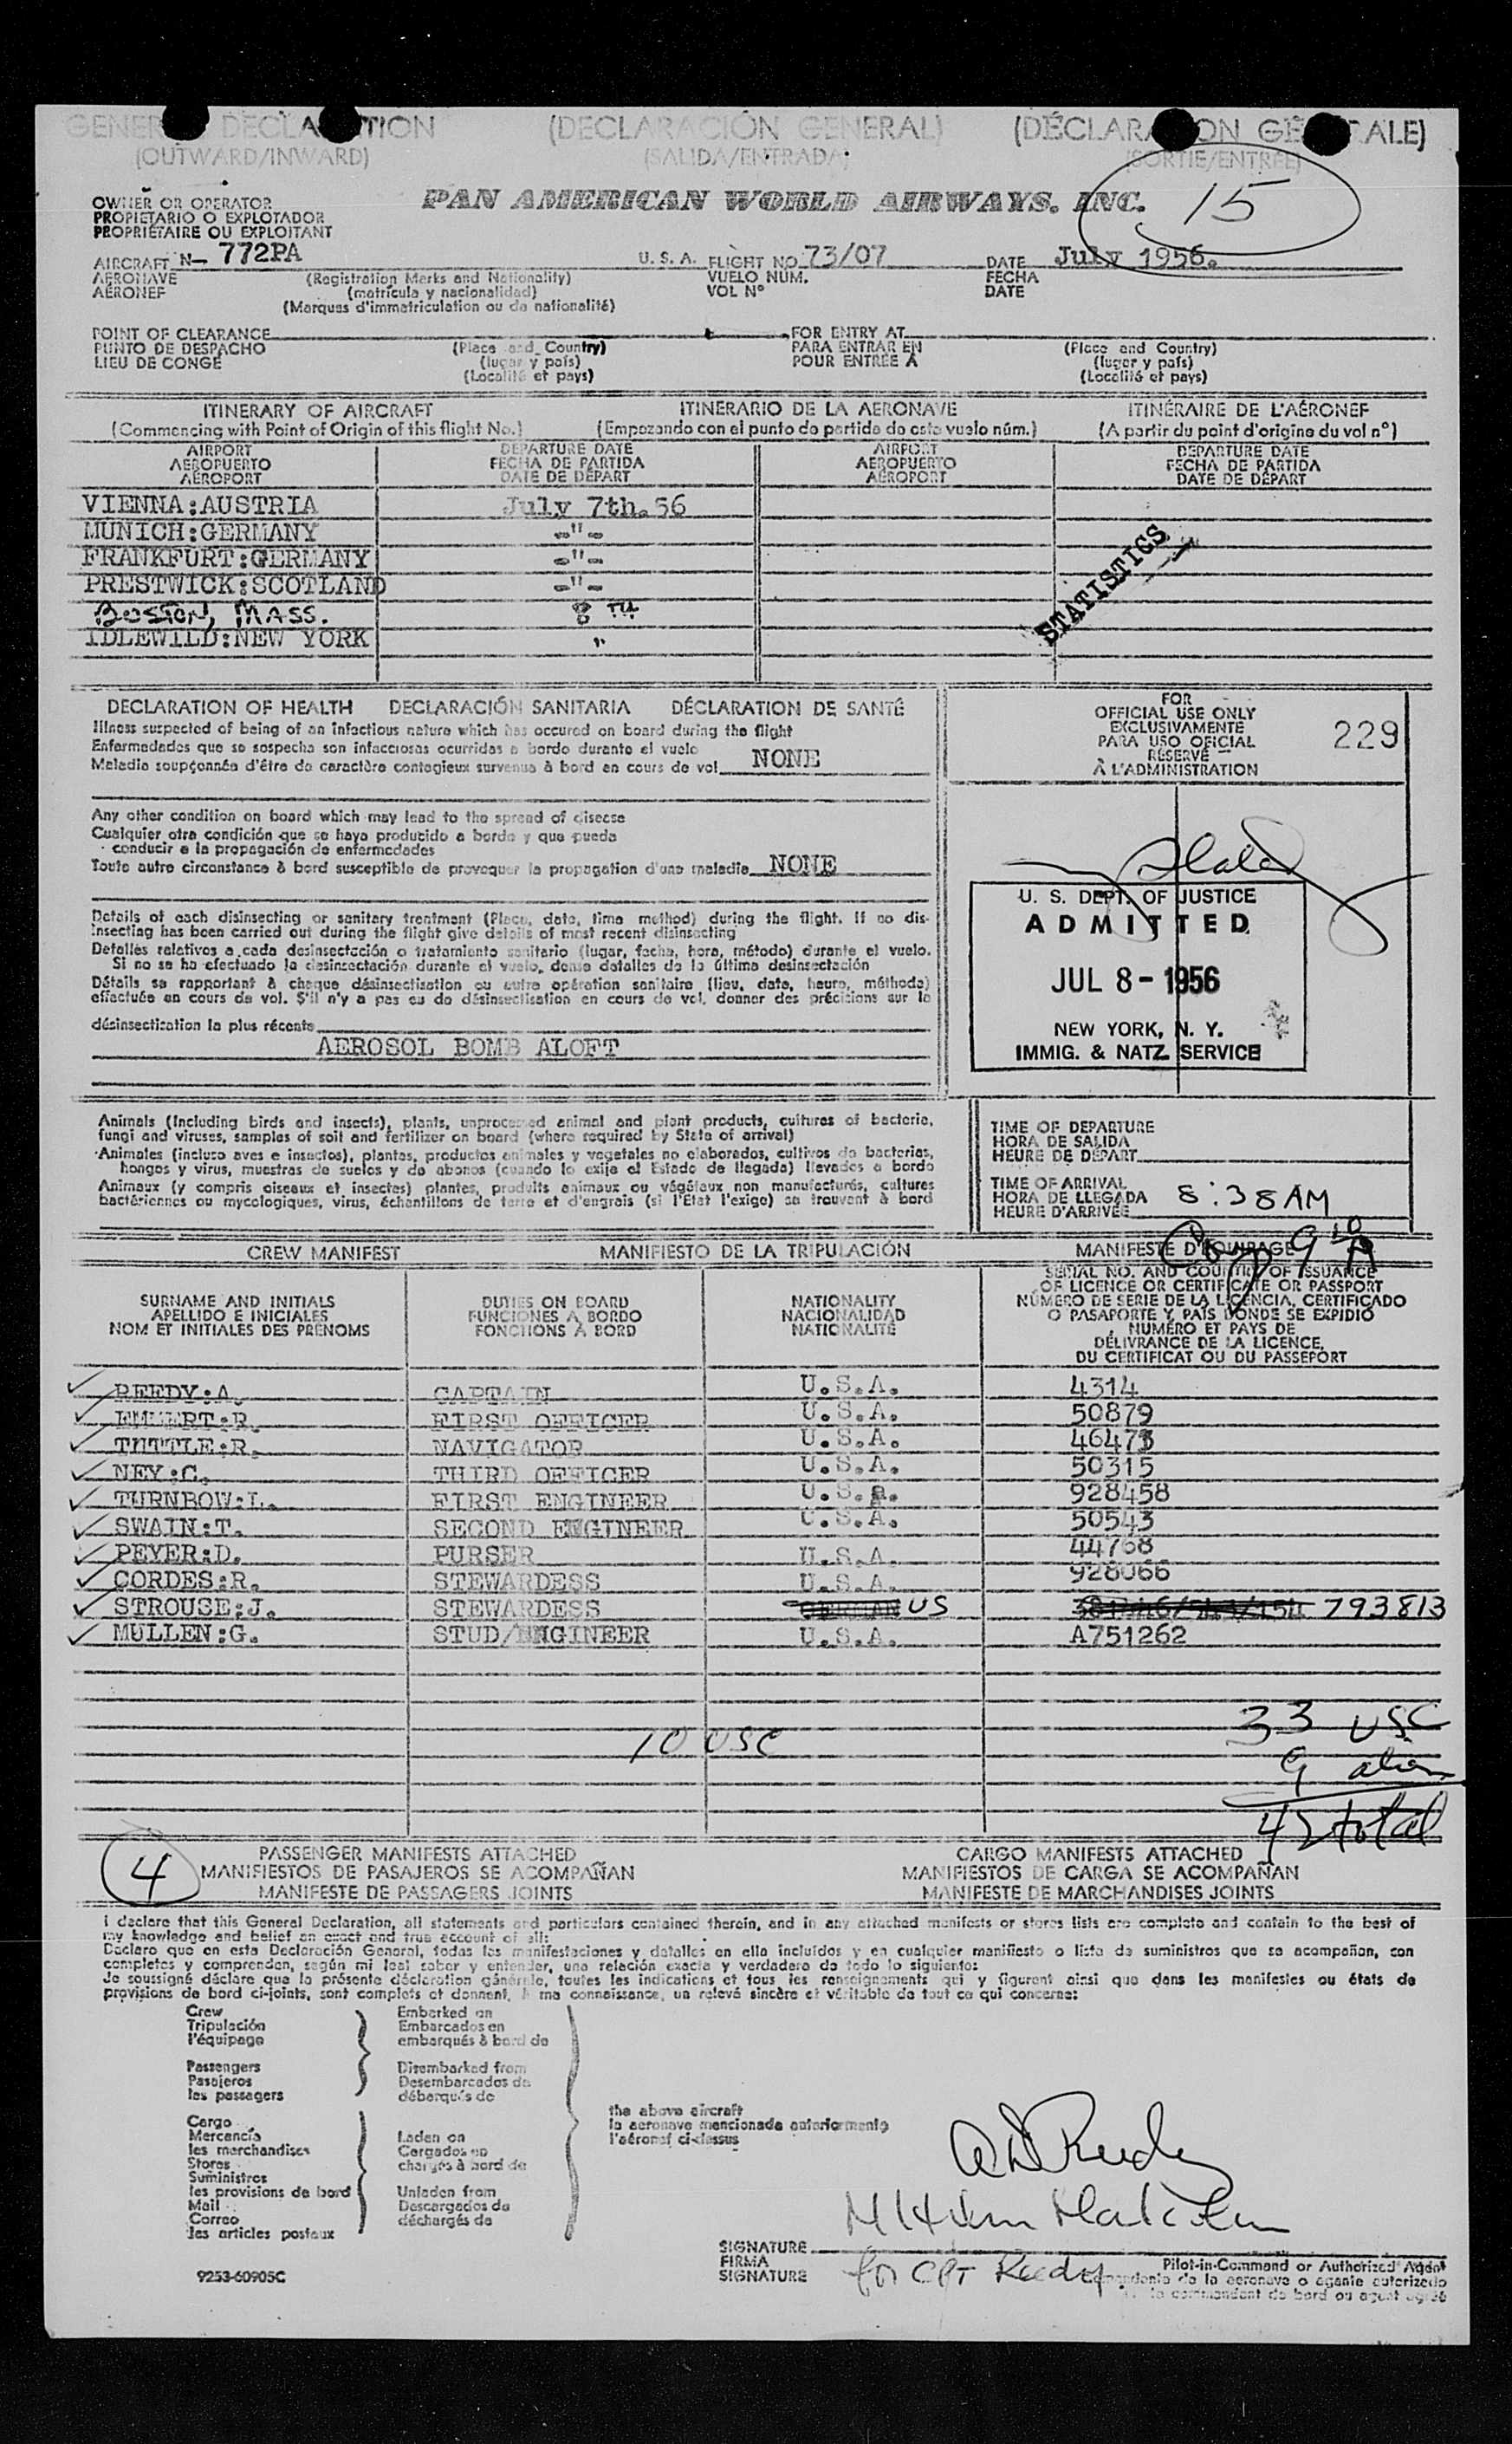 GENERAL DECLARATION (DECLARACIÓN GENERAL) (DÉCLARATION GÉNÉRALE)
(OUTWARD/INWARD) (SALIDA/ENTRADA) (SORTIE/ENTRÉE)
15
OWNER OR OPERATOR
PROPIETARIO O EXPLOTADOR
PROPRIÉTAIRE OU EXPLOITANT
PAN AMERICAN WORLD AIRWAYS, INC.
AIRCRAFT N— 772PA U. S. A. FLIGHT NO. 73/07 DATE July 1956.
AERONAVE (Registration Marks and Nationality) VUELO NÚM. FECHA
AÉRONEF (matrícula y nacionalidad) VOL Nº DATE
(Marques d'immatriculation ou de nationalité)
POINT OF CLEARANCE FOR ENTRY AT
PUNTO DE DESPACHO (Place and Country) PARA ENTRAR EN (Place and Country)
LIEU DE CONGÉ (lugar y país) POUR ENTRÉE À (lugar y país)
(Localité et pays) (Localité et pays)
ITINERARY OF AIRCRAFT ITINERARIO DE LA AERONAVE ITINÉRAIRE DE L'AÉRONEF
(Commencing with Point of Origin of this flight No.) (Empezando con el punto de partida de este vuelo núm.) (A partir du point d'origine du vol nº)
AIRPORT DEPARTURE DATE AIRPORT DEPARTURE DATE
AEROPUERTO FECHA DE PARTIDA AEROPUERTO FECHA DE PARTIDA
AÉROPORT DATE DE DÉPART AÉROPORT DATE DE DÉPART
VIENNA:AUSTRIA July 7th.56
MUNICH:GERMANY -"-
FRANKFURT:GERMANY -"-
PRESTWICK:SCOTLAND -"-
BOSTON, MASS. 8 TH
IDLEWILD:NEW YORK "
STATISTICS
DECLARATION OF HEALTH DECLARACIÓN SANITARIA DÉCLARATION DE SANTÉ
Illness suspected of being of an infectious nature which has occured on board during the flight
Enfermedades que se sospecha son infecciosas ocurridas a bordo durante el vuelo
Maladie soupçonnée d'être de caractère contagieux survenue à bord en cours de vol NONE
FOR
OFFICIAL USE ONLY
EXCLUSIVAMENTE
PARA USO OFICIAL
RÉSERVÉ
À L'ADMINISTRATION
229
Any other condition on board which may lead to the spread of disease
Cualquier otra condición que se haya producido a bordo y que pueda
conducir a la propagación de enfermedades
Toute autre circonstance à bord susceptible de provoquer la propagation d'une maladie NONE
Details of each disinsecting or sanitary treatment (Place, date, time method) during the flight. If no dis-
insecting has been carried out during the flight give details of most recent disinsecting
Detalles relativos a cada desinsectación o tratamiento sanitario (lugar, fecha, hora, método) durante el vuelo.
Si no se ha efectuado la desinsectación durante el vuelo, dense detalles de la última desinsectación
Détails se rapportant à chaque désinsectisation ou autre opération sanitaire (lieu, date, heure, méthode)
effectuée en cours de vol. S'il n'y a pas eu de désinsectisation en cours de vol, donner des précisions sur la
désinsectisation la plus récente
AEROSOL BOMB ALOFT
U. S. DEPT. OF JUSTICE
ADMITTED
JUL 8 - 1956
NEW YORK, N. Y.
IMMIG. & NATZ SERVICE
Animals (Including birds and insects), plants, unprocessed animal and plant products, cultures of bacteria,
fungi and viruses, samples of soil and fertilizer on board (where required by State of arrival)
Animales (incluso aves e insectos), plantas, productos animales y vegetales no elaborados, cultivos de bacterias,
hongos y virus, muestras de suelos y de abonos (cuando lo exija el Estado de llegada) llevados a bordo
Animaux (y compris oiseaux et insectes) plantes, produits animaux ou végétaux non manufacturés, cultures
bactériennes ou mycologiques, virus, échantillons de terre et d'engrais (si l'État l'exige) se trouvant à bord
TIME OF DEPARTURE
HORA DE SALIDA
HEURE DE DÉPART
TIME OF ARRIVAL
HORA DE LLEGADA 8:38 AM
HEURE D'ARRIVÉE
CREW MANIFEST MANIFIESTO DE LA TRIPULACIÓN MANIFESTE D'ÉQUIPAGE
SURNAME AND INITIALS DUTIES ON BOARD NATIONALITY
APELLIDO E INICIALES FUNCIONES A BORDO NACIONALIDAD
NOM ET INITIALES DES PRÉNOMS FONCTIONS À BORD NATIONALITÉ
SERIAL NO. AND COUNTRY OF ISSUANCE
OF LICENCE OR CERTIFICATE OR PASSPORT
NÚMERO DE SERIE DE LA LICENCIA, CERTIFICADO
O PASAPORTE Y PAÍS DONDE SE EXPIDIÓ
NUMÉRO ET PAYS DE
DÉLIVRANCE DE LA LICENCE,
DU CERTIFICAT OU DU PASSEPORT
REEDY:A. CAPTAIN U.S.A. 4314
EMMERT:R. FIRST OFFICER U.S.A. 50879
TUTTLE:R. NAVIGATOR U.S.A. 46473
NEY:C. THIRD OFFICER U.S.A. 50315
TURNBOW:L. FIRST ENGINEER U.S.A. 928458
SWAIN:T. SECOND ENGINEER U.S.A. 50543
PEYER:D. PURSER U.S.A. 44768
CORDES:R. STEWARDESS U.S.A. 928066
STROUSE:J. STEWARDESS GERMAN US 793813
MULLEN:G. STUD/ENGINEER U.S.A. A751262
10 USC
33 USC
9 alien
42 total
4
PASSENGER MANIFESTS ATTACHED CARGO MANIFESTS ATTACHED
MANIFIESTOS DE PASAJEROS SE ACOMPAÑAN MANIFIESTOS DE CARGA SE ACOMPAÑAN
MANIFESTE DE PASSAGERS JOINTS MANIFESTE DE MARCHANDISES JOINTS
I declare that this General Declaration, all statements and particulars contained therein, and in any attached manifests or stores lists are complete and contain to the best of
my knowledge and belief an exact and true account of all:
Declaro que en esta Declaración General, todas las manifestaciones y detalles en ella incluídos y en cualquier manifiesto o lista de suministros que se acompañan, son
completos y comprenden, según mi leal saber y entender, una relación exacta y verdadera de todo lo siguiente:
Je soussigné déclare que la présente déclaration générale, toutes les indications et tous les renseignements qui y figurent ainsi que dans les manifestes ou états de
provisions de bord ci-joints, sont complets et donnent, à ma connaissance, un relevé sincère et véritable de tout ce qui concerne:
Crew Embarked on
Tripulación Embarcados en
l'équipage embarqués à bord de
Passengers Disembarked from
Pasajeros Desembarcados de
les passagers débarqués de
the above aircraft
la aeronave mencionada anteriormente
l'aéronef ci-dessus
Cargo
Mercancía Laden on
les marchandises Cargados en
Stores chargés à bord de
Suministros
les provisions de bord Unladen from
Mail Descargados de
Correo déchargés de
les articles postaux
SIGNATURE
FIRMA
SIGNATURE
for CPT Reedy
Pilot-in-Command or Authorized Agent
Comandante de la aeronave o agente autorizado
le commandant de bord ou agent agréé
9253-60905C